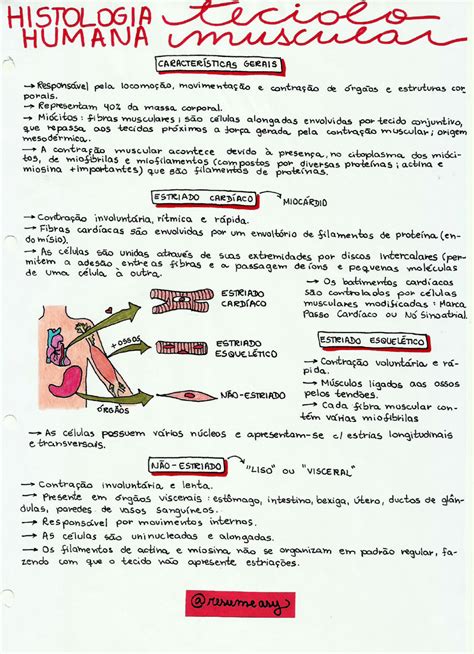 HISTOLOGIA HUMANA tecido muscular
CARACTERÍSTICAS GERAIS
→ Responsável pela locomoção, movimentação e contração de órgãos e estruturas cor
porais.
→ Representam 40% da massa corporal.
→ Miócitos: fibras musculares; são células alongadas envolvidas por tecido conjuntivo,
que repassa aos tecidos próximos a força gerada pela contração muscular; origem
mesodérmica.
→ A contração muscular acontece devido à presença, no citoplasma dos mióci-
tos, de miofibrilas e miofilamentos (compostos por diversas proteínas; actina e
miosina + importantes) que são filamentos de proteínas.
ESTRIADO CARDÍACO → MIOCÁRDIO
→ Contração involuntária, rítmica e rápida.
→ Fibras cardíacas são envolvidas por um envoltório de filamentos de proteína (en-
domísio).
→ As células são unidas através de suas extremidades por discos intercalares (per-
mitem a adesão entre as fibras e a passagem de íons e pequenas moléculas
de uma célula à outra.
→ Os batimentos cardíacos
são controlados por células
musculares modificadas: Marca
Passo Cardíaco ou Nó Sinoatrial.
ESTRIADO
CARDÍACO
+ OSSOS
ESTRIADO
ESQUELÉTICO
NÃO-ESTRIADO
ÓRGÃOS
ESTRIADO ESQUELÉTICO
→ Contração voluntária e rá-
pida.
→ Músculos ligados aos ossos
pelos tendões.
→ Cada fibra muscular con-
têm várias miofibrilas
→ As células possuem vários núcleos e apresentam-se c/ estrias longitudinais
e transversais.
NÃO-ESTRIADO → "LISO" OU "VISCERAL"
→ Contração involuntária e lenta.
→ Presente em órgãos viscerais: estômago, intestino, bexiga, útero, ductos de glân-
dulas, paredes de vasos sanguíneos.
→ Responsável por movimentos internos.
→ As células são uninucleadas e alongadas.
→ Os filamentos de actina e miosina não se organizam em padrão regular, fa-
zendo com que o tecido não apresente estriações.
@resumeasy